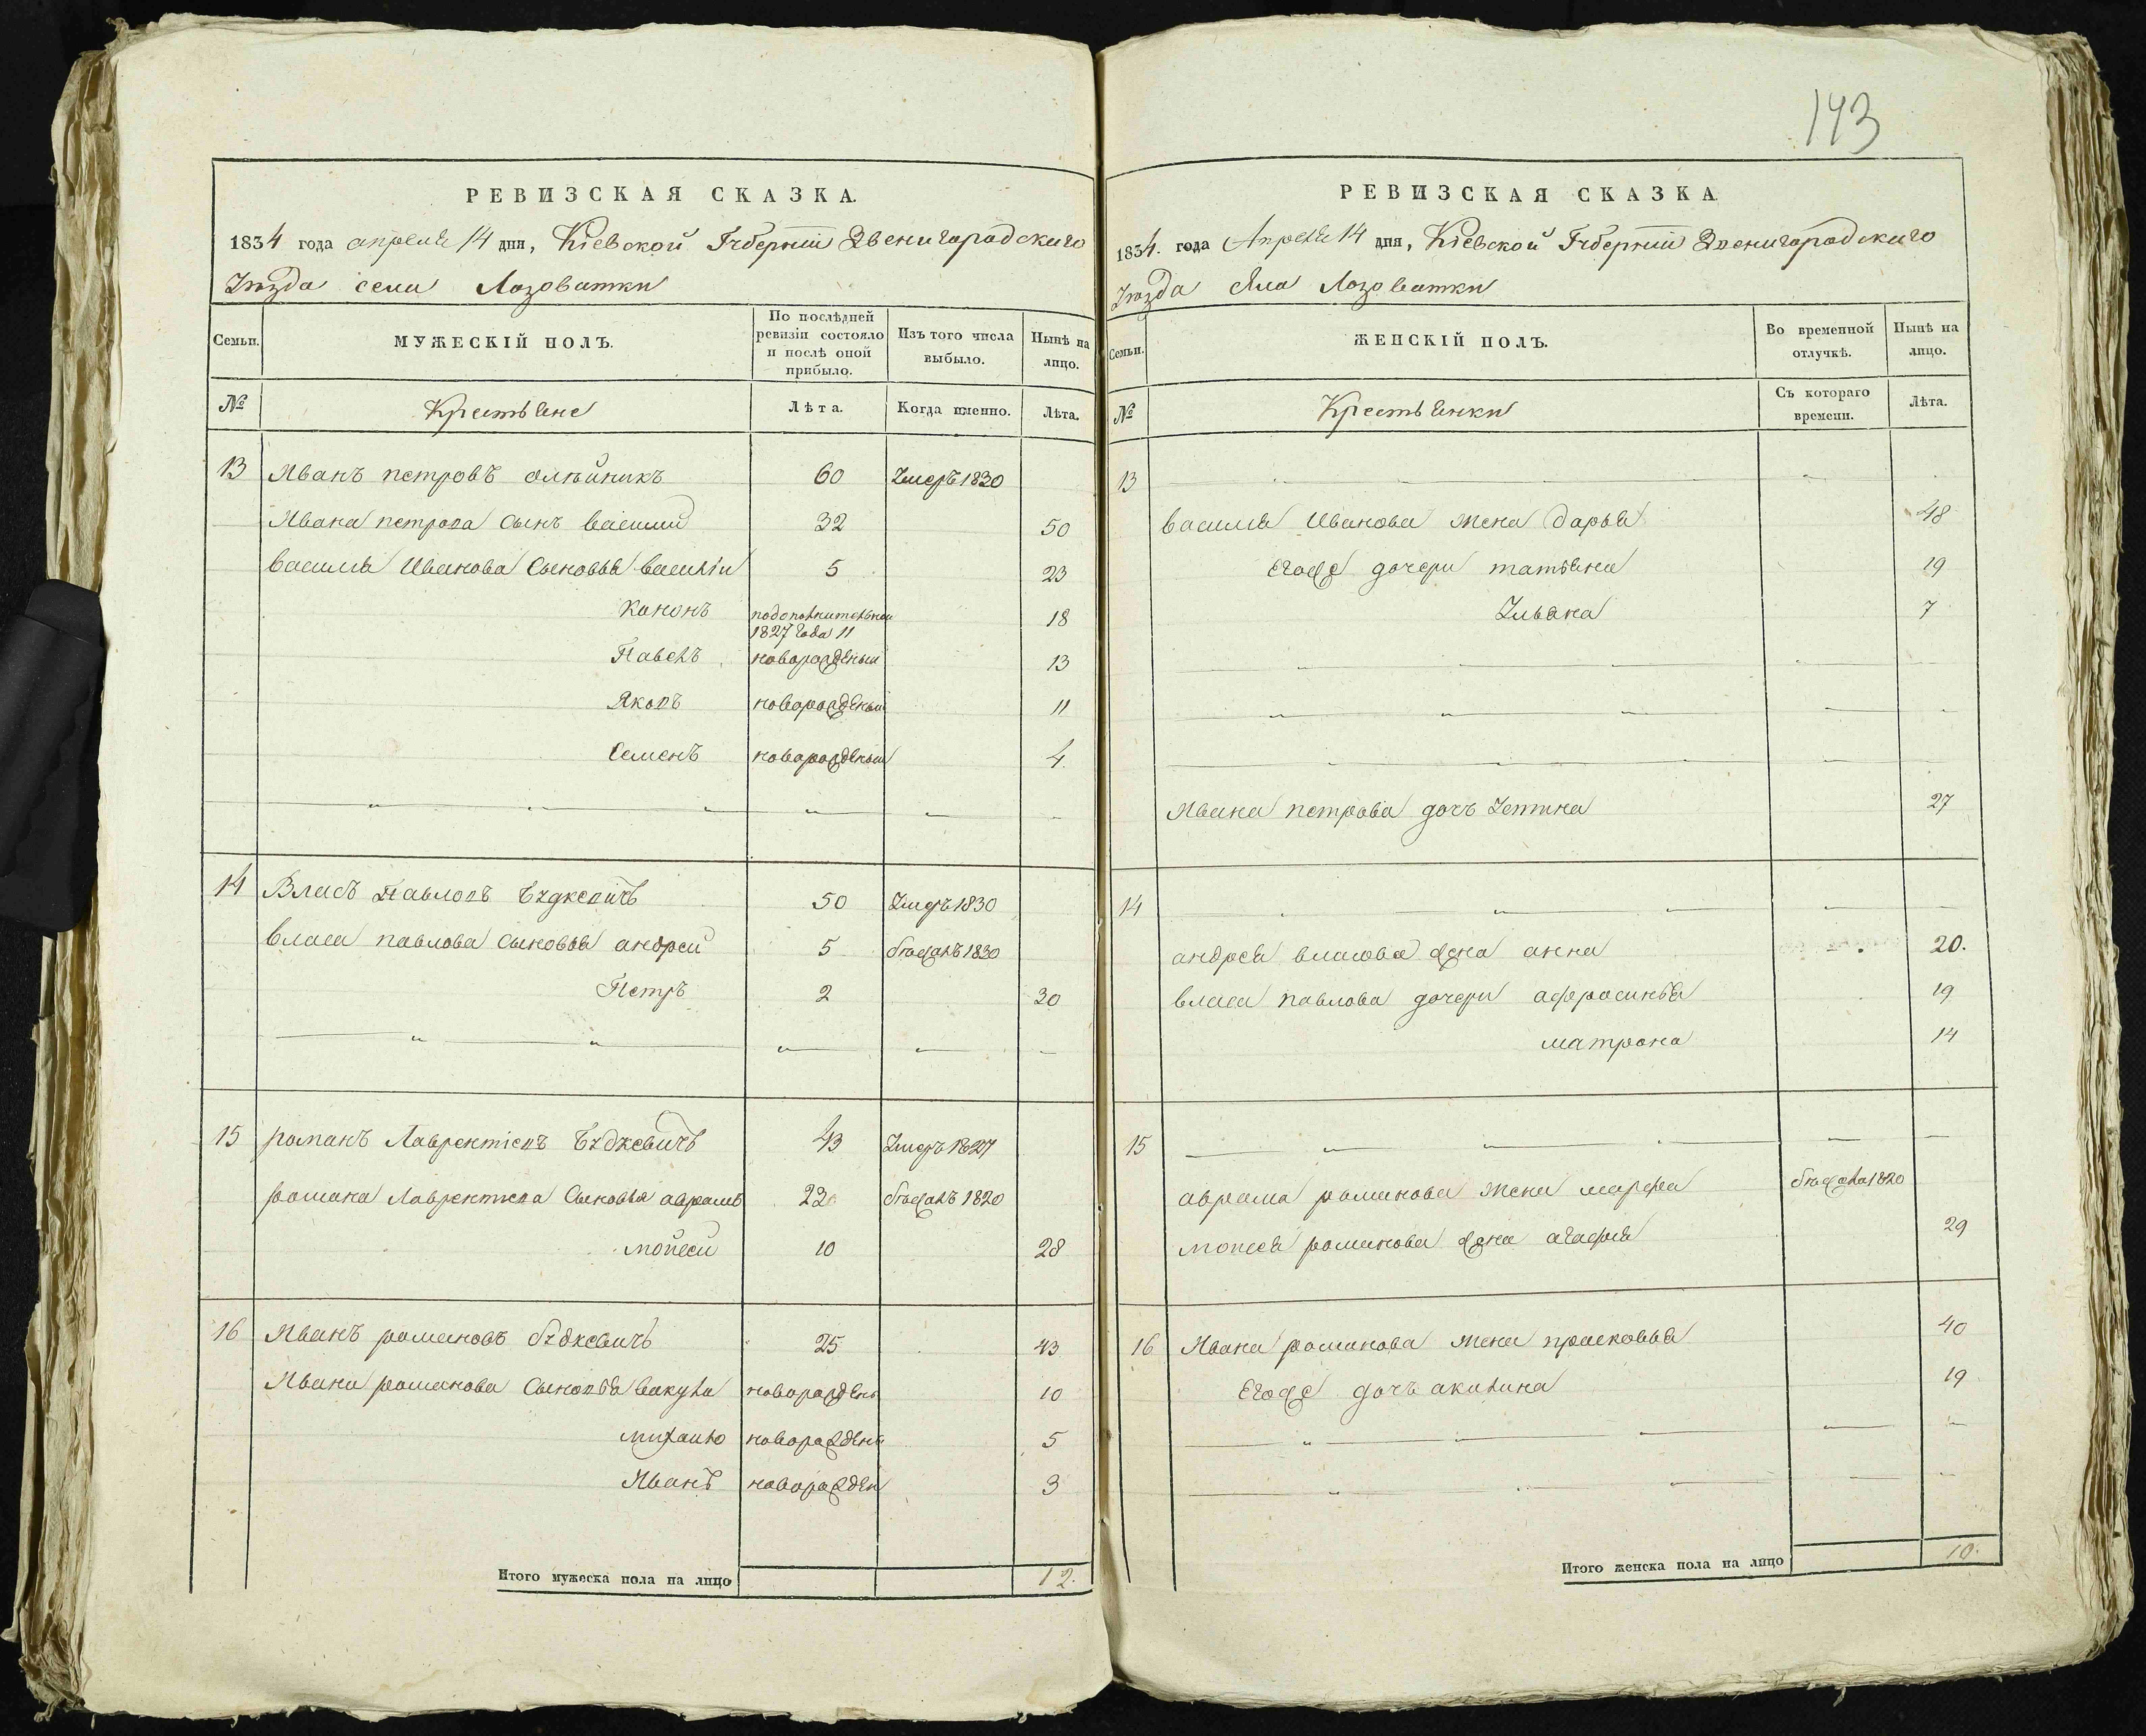 143
РЕВИЗСКАЯ СКАЗКА.
1834 года апреля 14 дня, Кіевской Губерніи Звенигородскаго
Уюзда села Лозоватки
Семьи.
МУЖЕСКІЙ ПОЛЪ.
По послѣдней ревизіи состояло и послѣ оной прибыло.
Изъ того числа выбыло.
Нынѣ на лицо.
№ Крестьяне Лѣта. Когда именно. Лѣта.
13 Иванъ петровъ олѣйникъ 60 Умеръ 1830
Ивана петрова Сынъ василий 32 50
василия Иванова Сыновья василіи 5 23
Кононъ подополнительной 1827 года 11 18
Павелъ новорожденый 13
Яковъ новорожденый 11
Семенъ новорожденый 4
14 Власъ Павловъ Будкевичъ 50 Умеръ 1830
власа павлова Сыновья андрей 5 бѣжалъ 1830
Петръ 2 20
15 романъ Лаврентіевъ Будкевичъ 43 Умеръ 1827
романа Лаврентиева Сыновья аврамъ 23 бѣжалъ 1820
мойсей 10 28
16 Иванъ романовъ будкевичъ 25 43
Ивана романова Сыновья вакула новорожден 10
михаило новорожден 5
Иванъ новорожден 3
Итого мужеска пола на лицо 12.
РЕВИЗСКАЯ СКАЗКА
1834. года Апреля 14 дня, Кіевской Губерніи Звенигородскаго
Уюзда села Лозоватки
Семьи.
ЖЕНСКІЙ ПОЛЪ.
Во временной отлучкѣ.
Нынѣ на лицо.
№ Крестьянки Съ котораго времени. Лѣта.
13
василия Иванова жена дарья 48
Егоже дочери татьяна 19
Ульяна 7
Ивана петрова дочъ Устина 27
14
андрея власова жена анна 20.
власа павлова дочери афросинья 19
матрона 14
15
аврама романова жена марфа бѣжала 1820
моисея романова жена агафия 29
16 Ивана романова жена прасковья 40
Егоже дочъ акилина 19
Итого женска пола на лицо 10.